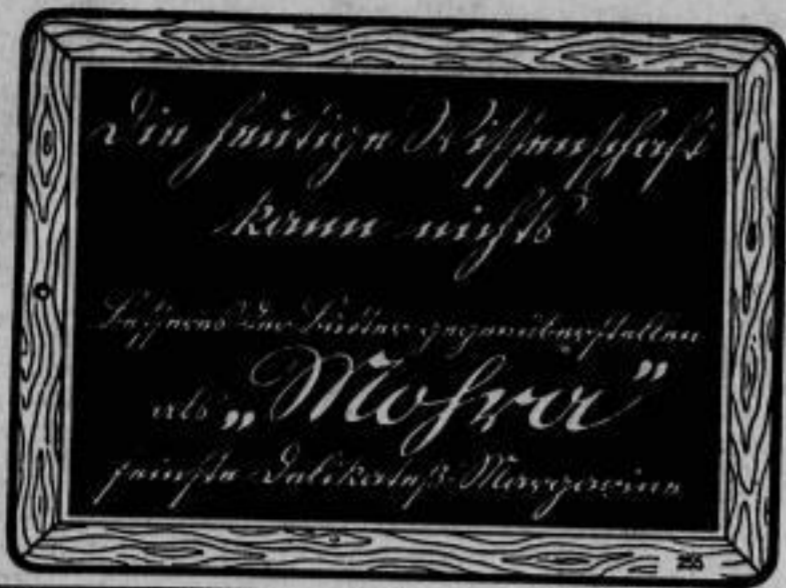 Die heutige Wissenschaft
kann nichts
Besseres der Butter gegenüberstellen
als „Mohra”
feinste Delikateß-Margarine
255